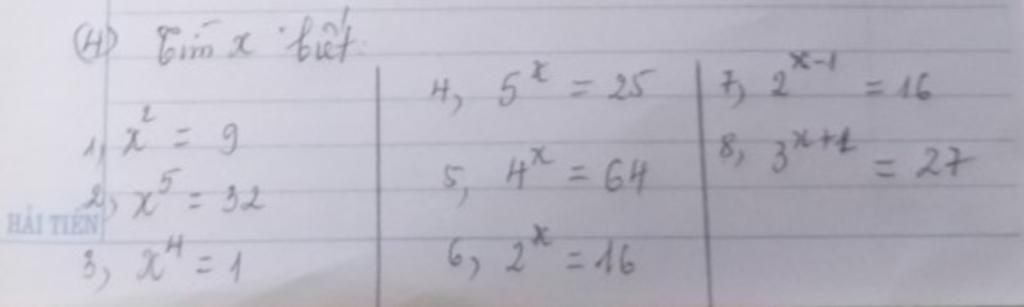 (4) Tìm x biết:
1, x² = 9
2, x⁵ = 32
3, x⁴ = 1
4, 5ˣ = 25
5, 4ˣ = 64
6, 2ˣ = 16
7, 2ˣ⁻¹ = 16
8, 3ˣ⁺¹ = 27
HẢI TIẾN